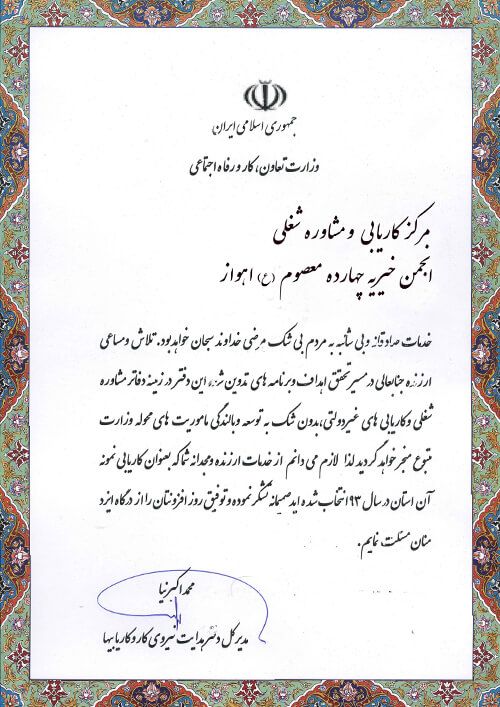 جمهوری اسلامی ایران
وزارت تعاون، کار و رفاه اجتماعی
مرکز کاریابی و مشاوره شغلی
انجمن خیریه چهارده معصوم (ع) اهواز
خدمات صادقانه و بی شائبه به مردم بی شک مرضی خداوند سبحان خواهد بود. تلاش و مساعی
ارزنده جنابعالی در مسیر تحقق اهداف و برنامه های تدوین شده این دفتر در زمینه دفاتر مشاوره
شغلی و کاریابی های غیردولتی، بدون شک به توسعه و بالندگی ماموریت های محوله وزارت
متبوع منجر خواهد گردید لذا لازم می دانم از خدمات ارزنده و مجدانه شما که بعنوان کاریابی نمونه
آن استان در سال ۹۳ انتخاب شده اید صمیمانه تشکر نموده و توفیق روز افزونتان را از درگاه ایزد
منان مسئلت نمایم.
محمد اکبرنیا
مدیر کل دفتر هدایت نیروی کار و کاریابیها